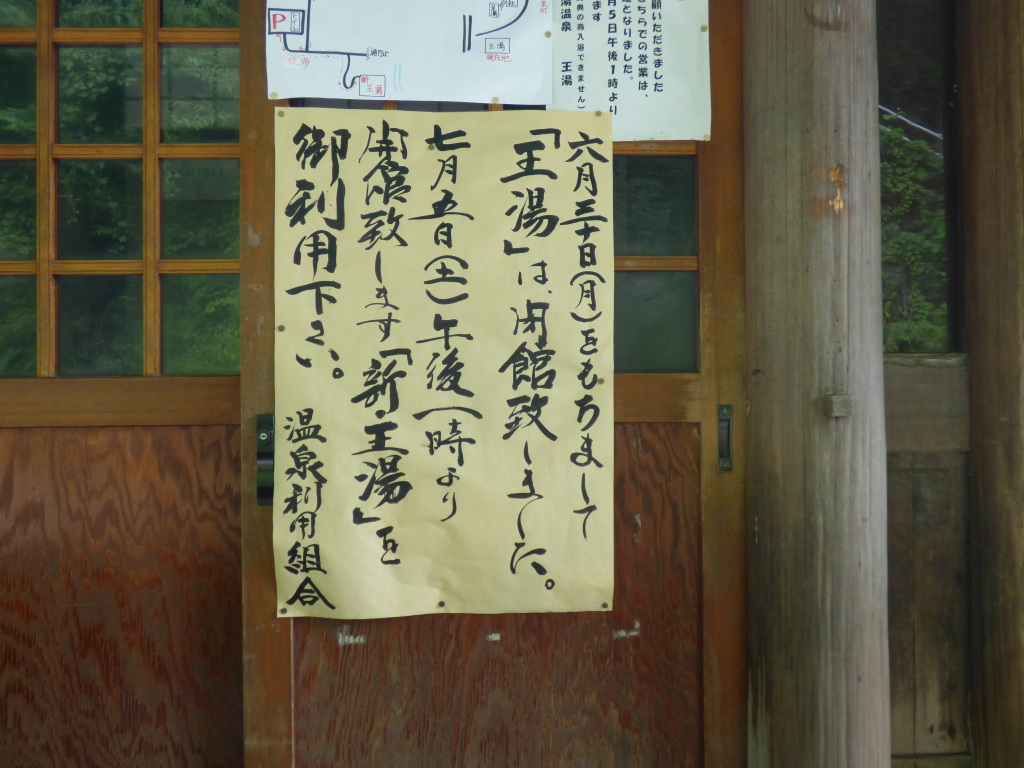 顧いただきました
ちらでの営業は、
となりました。
月5日午後1時より
ます
入浴できません)
湯温泉 王湯
P
徒歩
新
王湯
王湯
現在地
六月三十日(月)をもちまして
「王湯」は、閉館致しました。
七月五日(土)午後一時より
開館致します「新・王湯」を
御利用下さい。
温泉利用組合